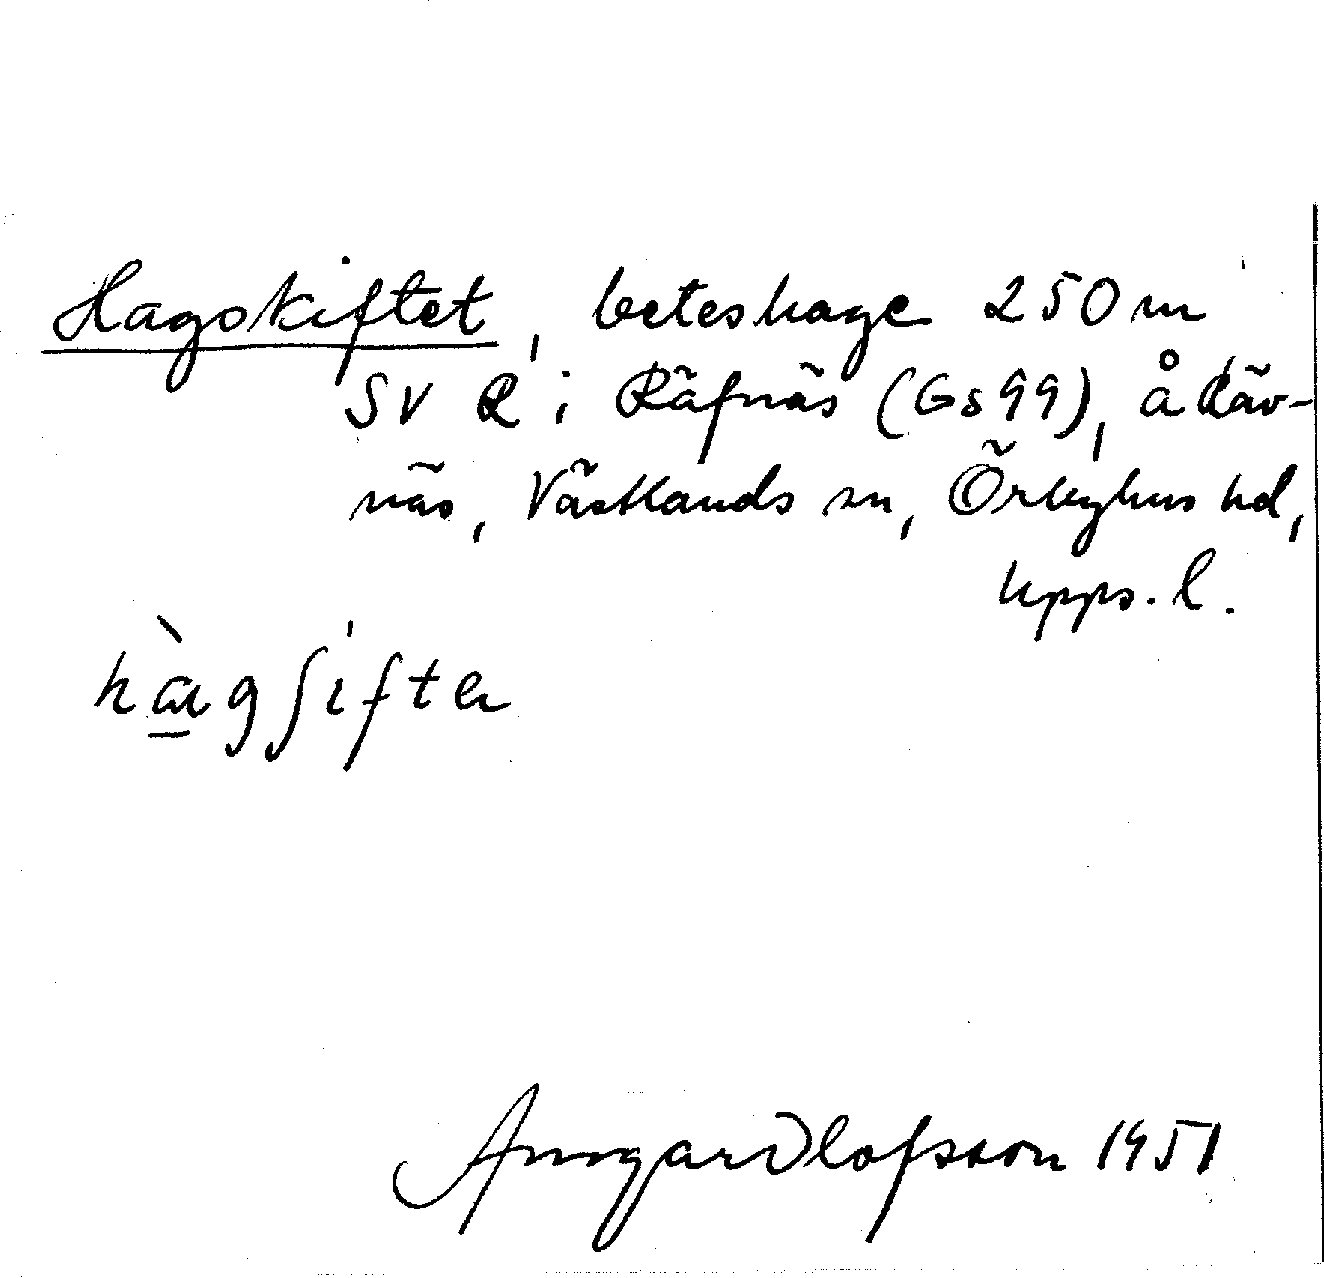 Hagskiftet, beteshage 250 m
SV R i Räfnäs (Gs 99), å Räv-
näs, Västlands sn, Örbyhus hd,
Upps. l.
hàgʃifter
Ansgar Olofsson 1951